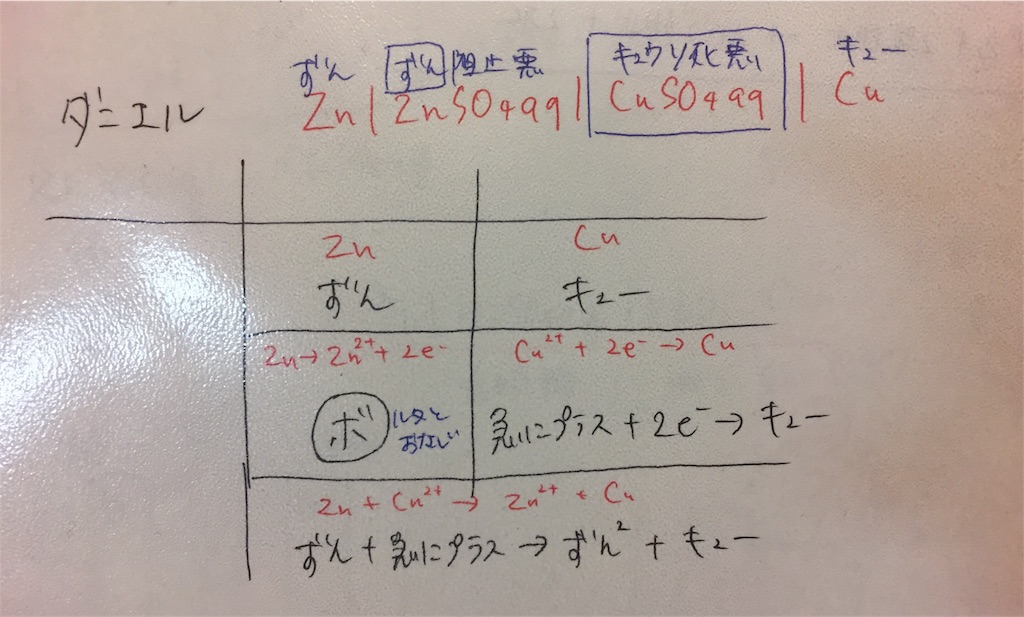 ずん ずん 阻止悪 キュウソ死悪い キュー
ダニエル Zn | ZnSO4aq | CuSO4aq | Cu
Zn Cu
ずん キュー
Zn→Zn²⁺+2e⁻ Cu²⁺+2e⁻→Cu
ボルタとおなじ 急にプラス+2e⁻→キュー
Zn+Cu²⁺→Zn²⁺+Cu
ずん+急にプラス→ずん²+キュー